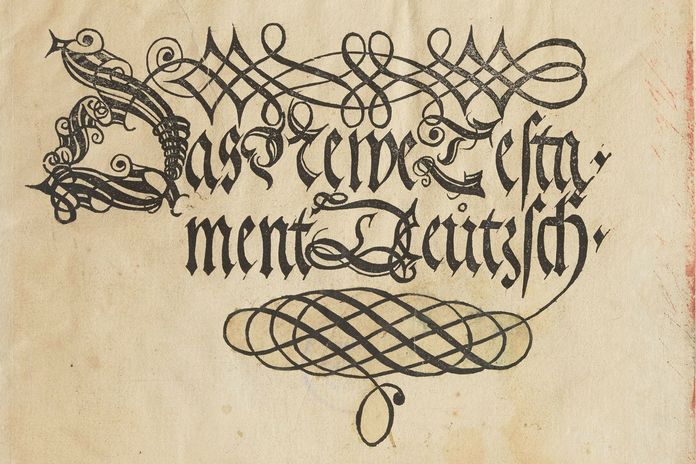 Das Newe Testa⸗
ment Deůtzsch.